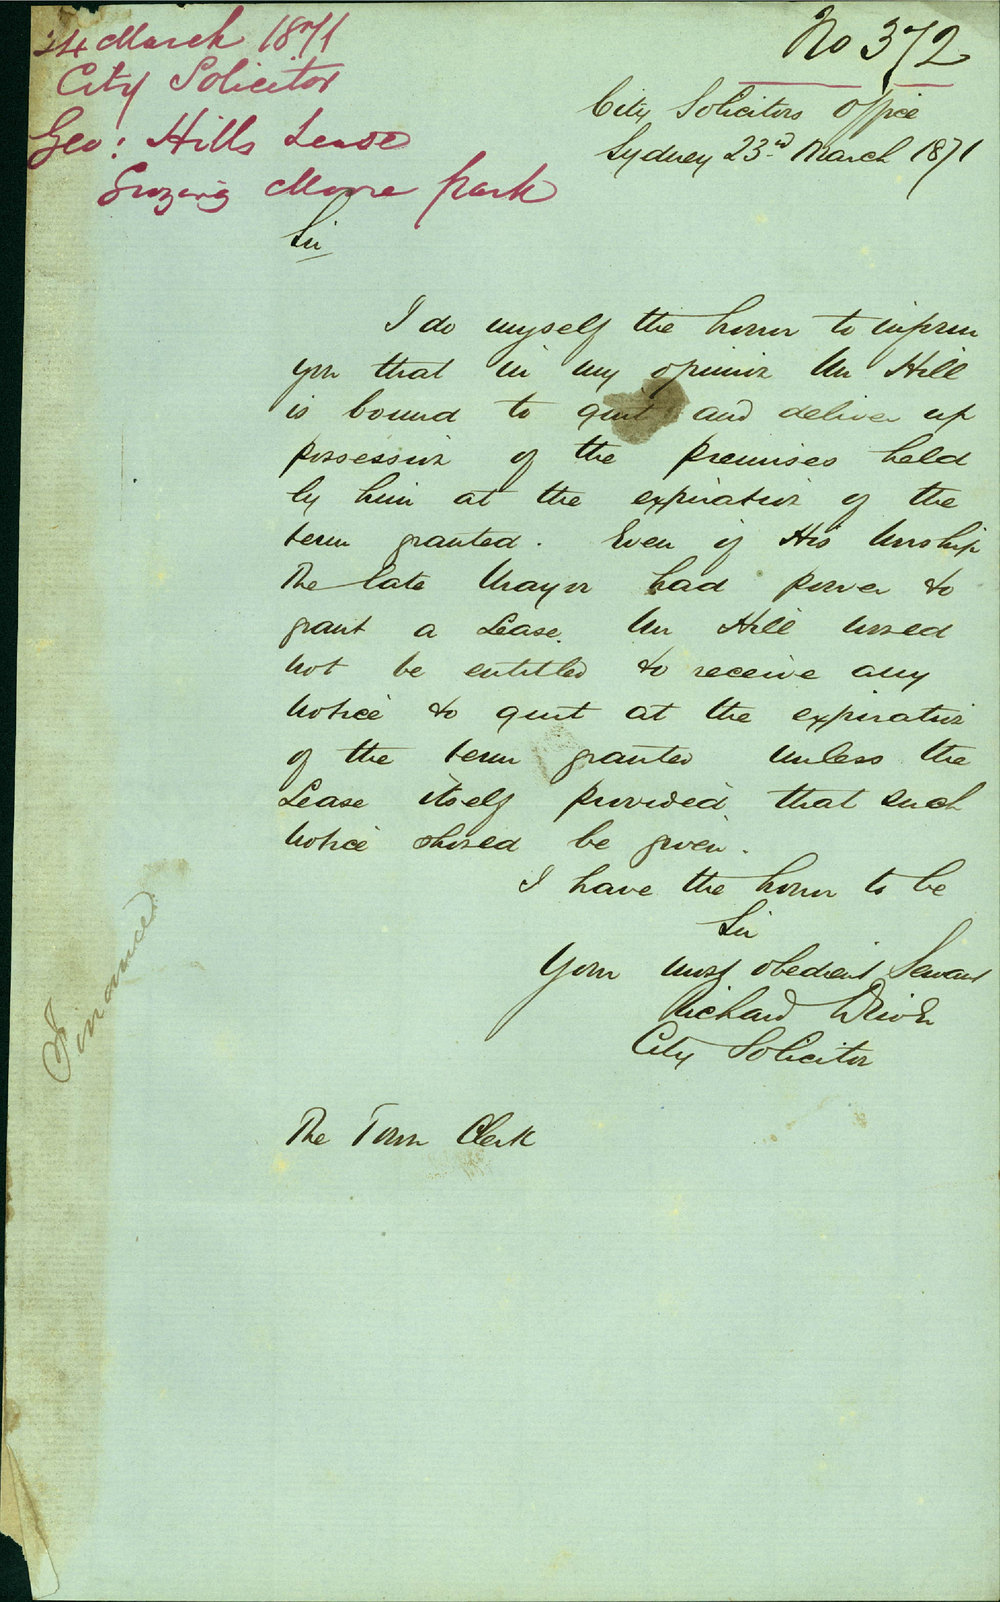 24 March 1871
City Solicitor
Geo: Hills Lease
Grazing Moore Park
No 372
City Solicitors Office
Sydney 23rd March 1871
Sir
I do myself the honor to inform
you that in my opinion Mr Hill
is bound to quit and deliver up
possession of the premises held
by him at the expiration of the
term granted. Even if His Worship
The late Mayor had power to
grant a Lease. Mr Hill would
not be entitled to receive any
Notice to quit at the expiration
of the term granted unless the
Lease itself provided that such
Notice should be given.
I have the honor to be
Sir
Your most obedient Servant
Richard Driver
City Solicitor
The Town Clerk
Finance